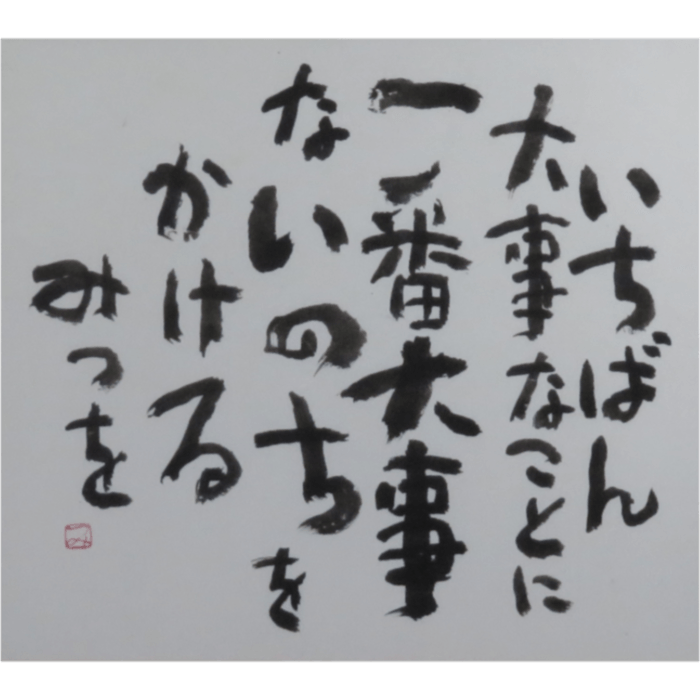 いちばん
大事なことに
一番大事
ないのちを
かける
みつを